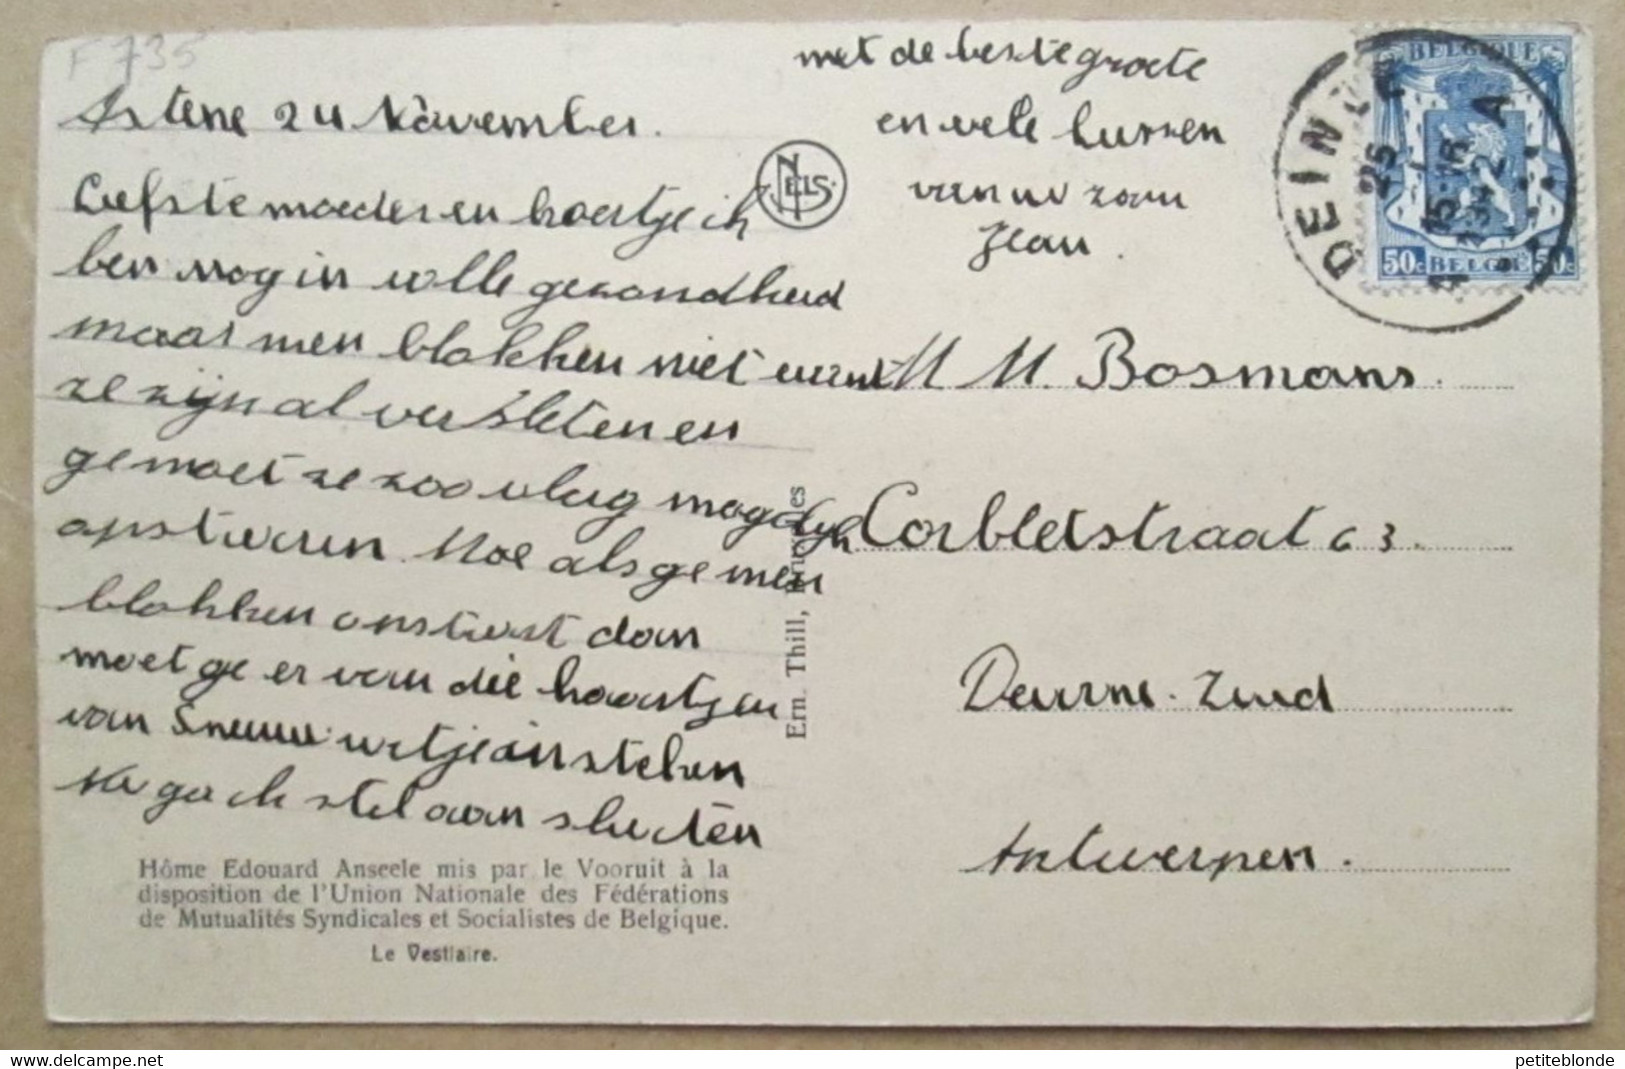 F 735
Astene 24 November.
Liefste moeder en broertje ich
ben nog in volle gezondheid
maar men blokken niet
ze zijn al versleten en
ge moet ze zoo vlug mogelijk
opsturen. Moe als ge men
blokken opstuert dan
moet ge er van die koortjen
van Sneeuwwitje in steken
Nu ga ik stil aan sluiten
met de beste groete
en vele kussen
van uw zoon
Jean.
NELS
DEINZE
25
15-16
1942
A
BELGIQUE
50c BELGIË 50c
M M. Bosmans.
Corbletstraat 63.
Deurne-Zuid
Antwerpen.
Ern. Thill, Bruxelles
Hôme Edouard Anseele mis par le Vooruit à la
disposition de l'Union Nationale des Fédérations
de Mutualités Syndicales et Socialistes de Belgique.
Le Vestiaire.
petiteblonde